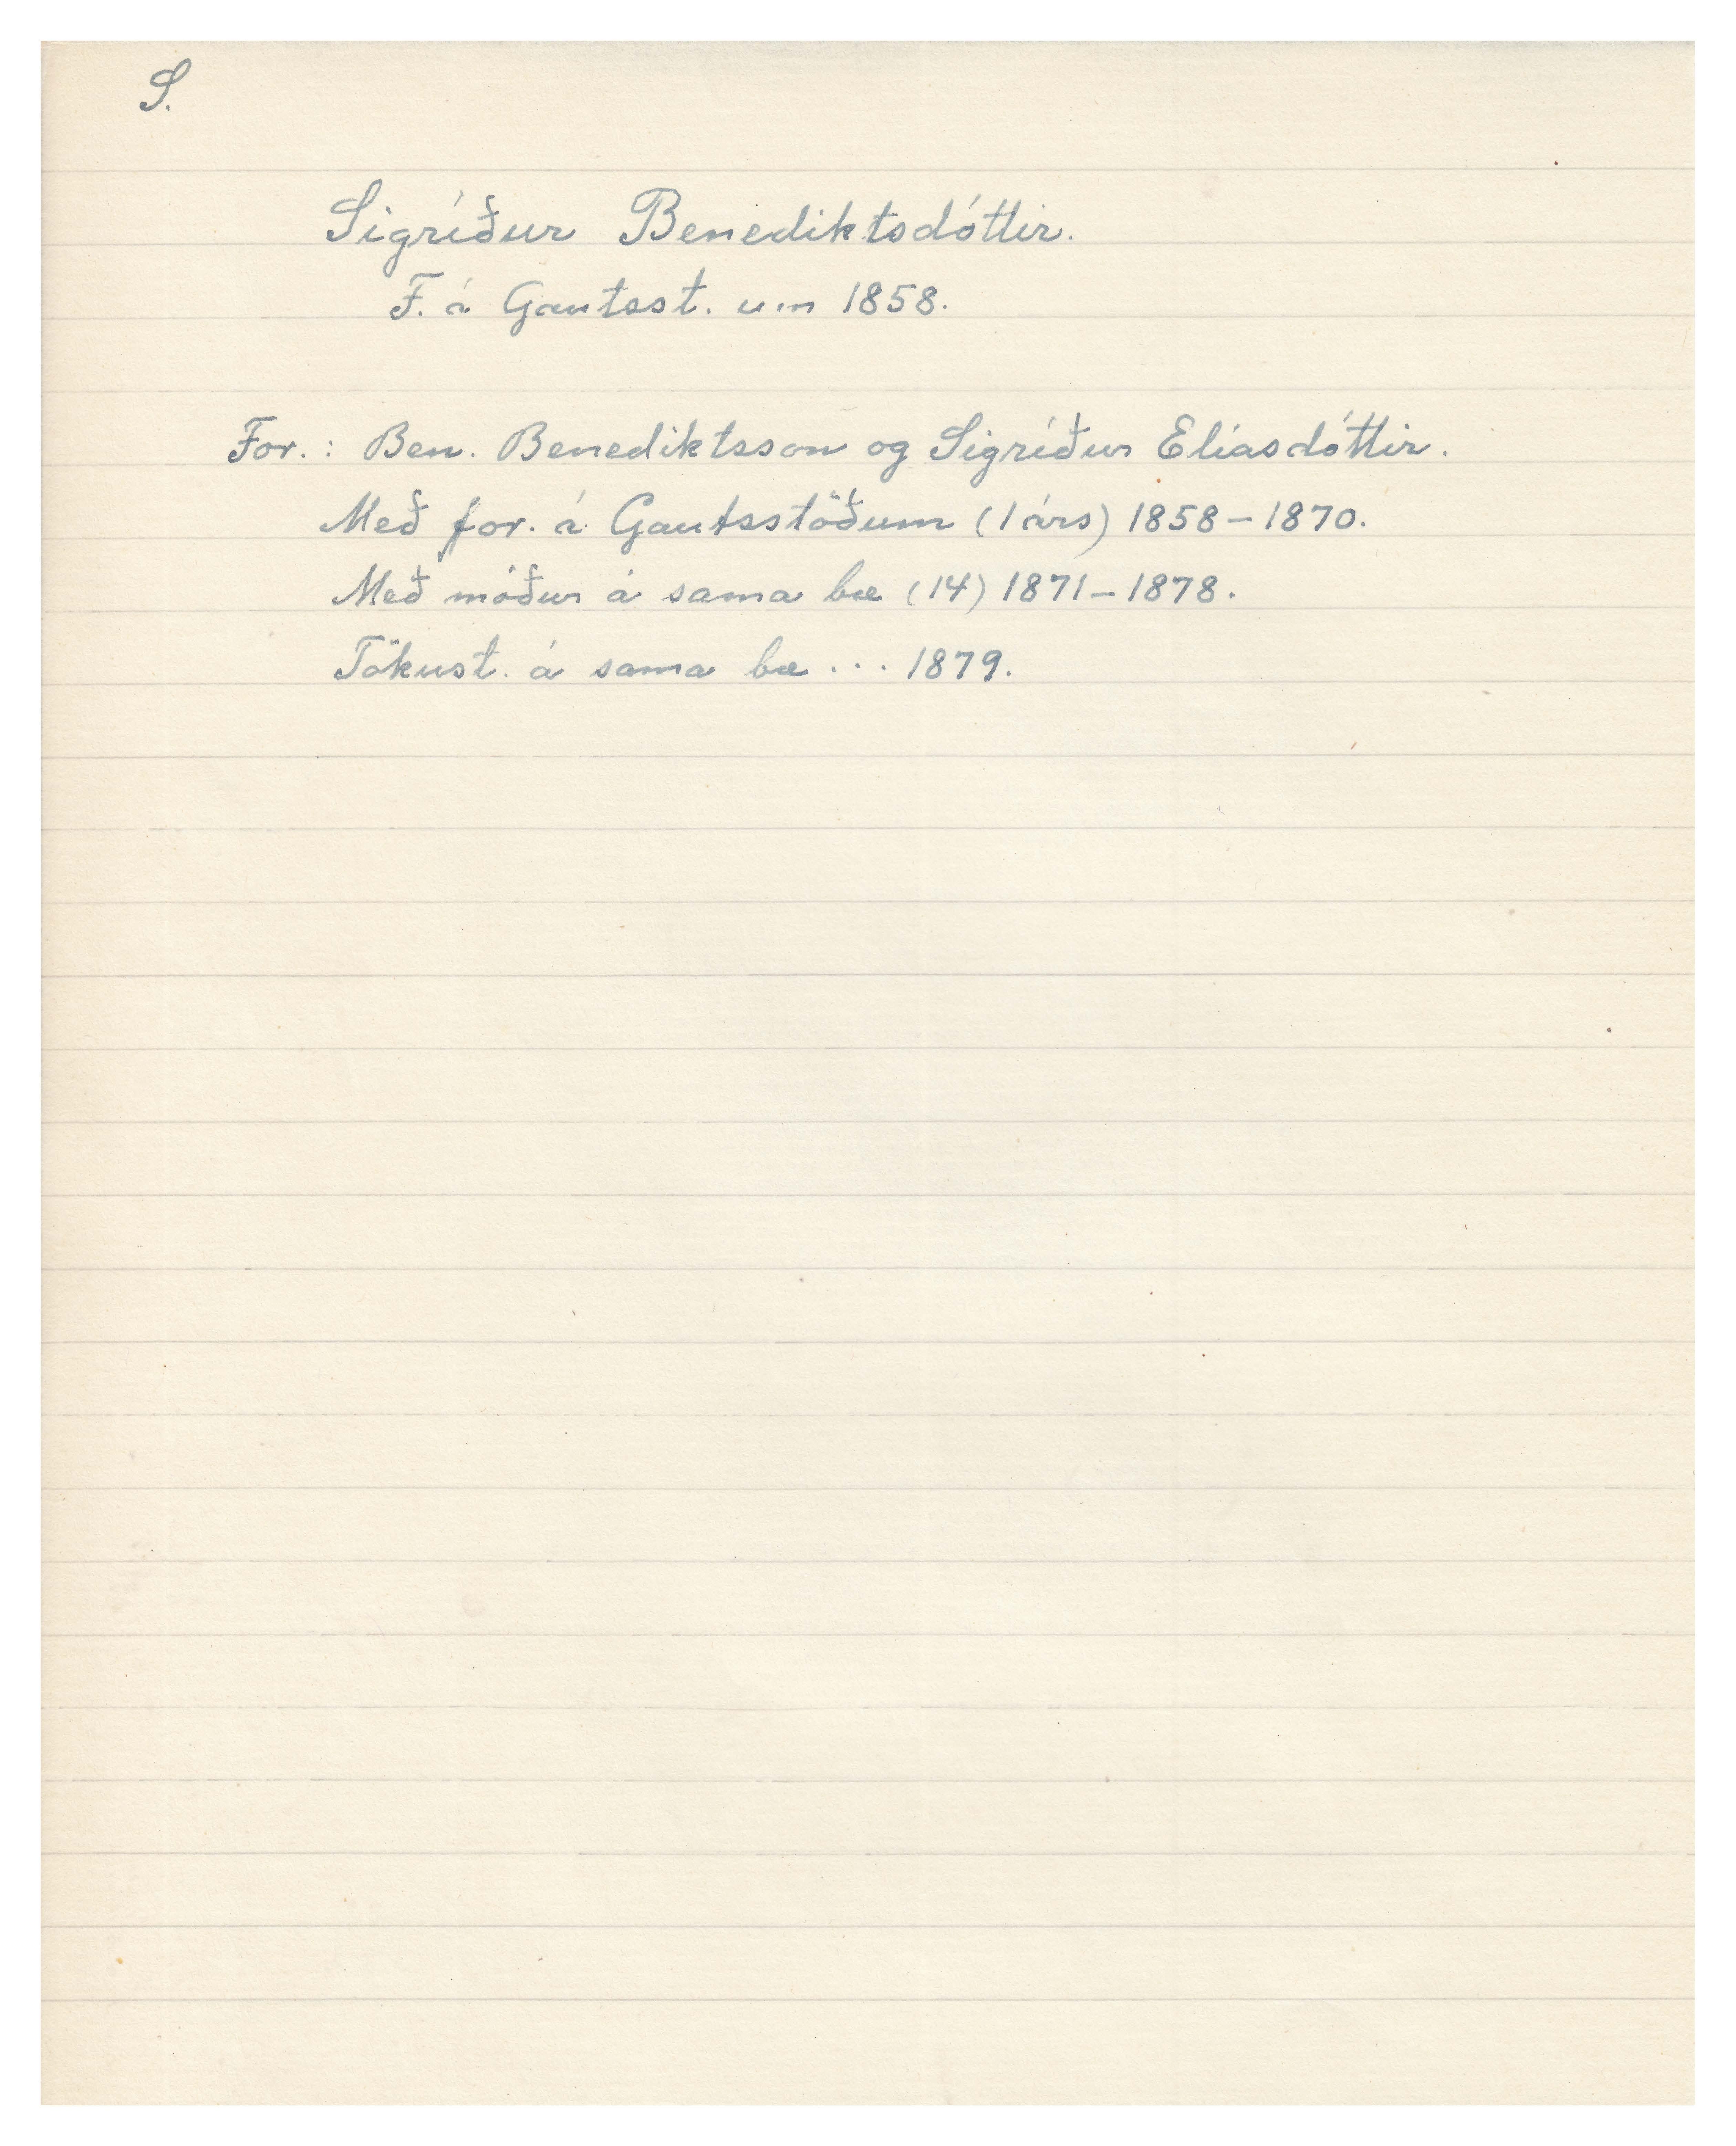 S.
Sigríður Benediktsdóttir.
F. á Gautsst. um 1858.
For.: Ben. Benediktsson og Sigríður Elíasdóttir.
Með for. á Gautsstöðum (1 árs) 1858-1870.
Með móður á sama bæ (14) 1871-1878.
Tökust. á sama bæ ... 1879.